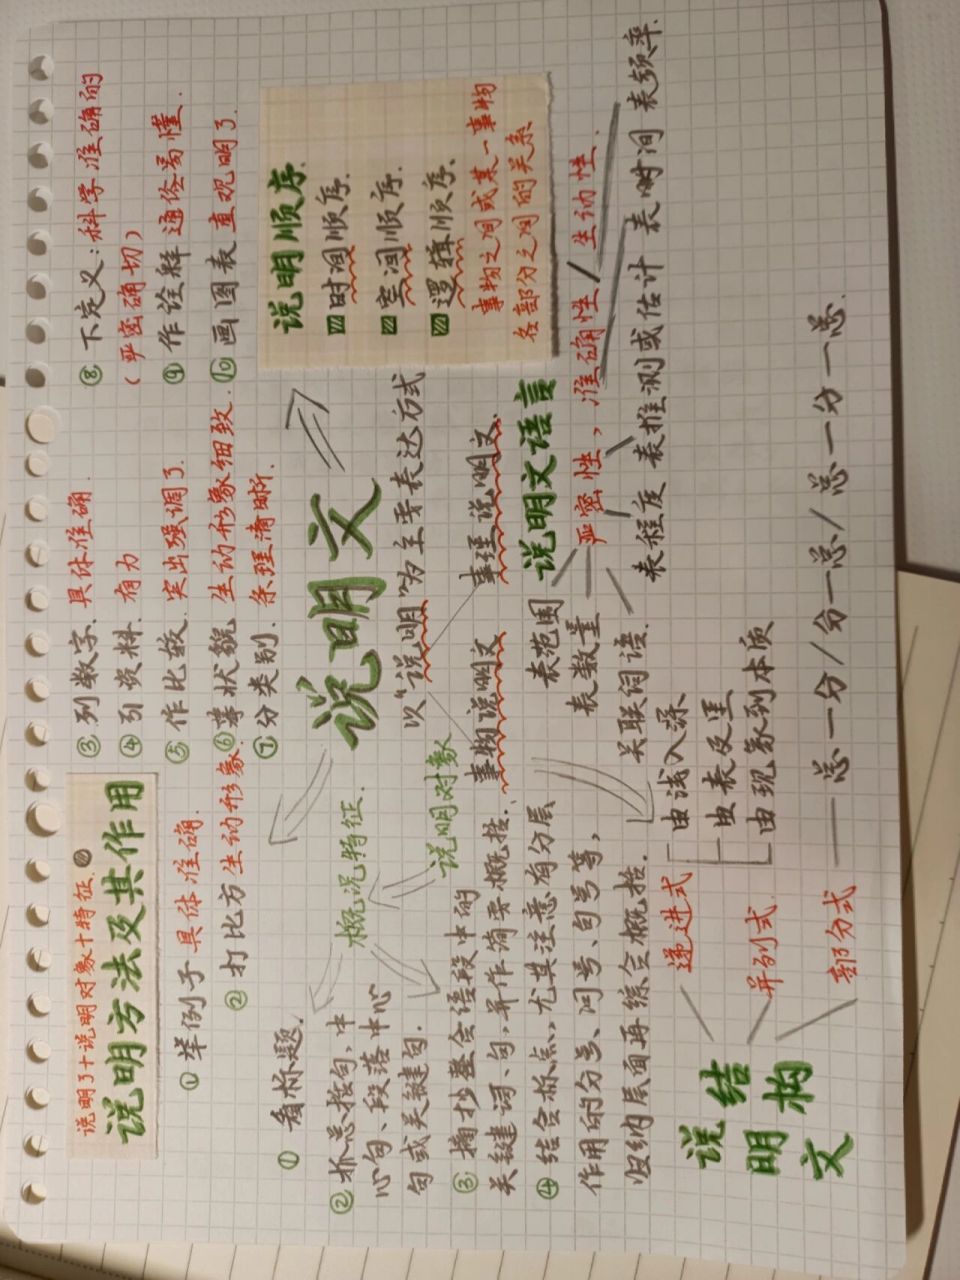 说明了+说明对象+特征.
说明方法及其作用
①举例子 具体准确
②打比方 生动形象.
③列数字. 具体准确.
④引资料. 有力
⑤作比较. 突出强调了.
⑥摹状貌 生动形象细致.
⑦分类别. 条理清晰.
⑧下定义:科学准确的
(严密确切)
⑨作诠释 通俗易懂.
⑩画图表 直观明了.
说明文
以“说明”为主要表达方式
事物说明文 事理说明文.
说明对象
概况特征.
①看标题.
②抓总括句,中
心句、段落中心
句或关键句.
③摘抄整合语段中的
关键词、句,并作简要概括.
④结合标点,尤其注意有分层
作用的分号、问号、句号等,
归纳层面再综合概括.
说明顺序.
时间顺序.
空间顺序.
逻辑顺序.
事物之间或某一事物
各部分之间的关系
说明文语言
严密性,准确性/生动性.
表范围
表数量
关联词语.
表程度 表推测或估计 表时间 表频率.
说明文结构
递进式
由浅入深
由表及里
由现象到本质
并列式
部分式
总—分/分—总/总—分—总.